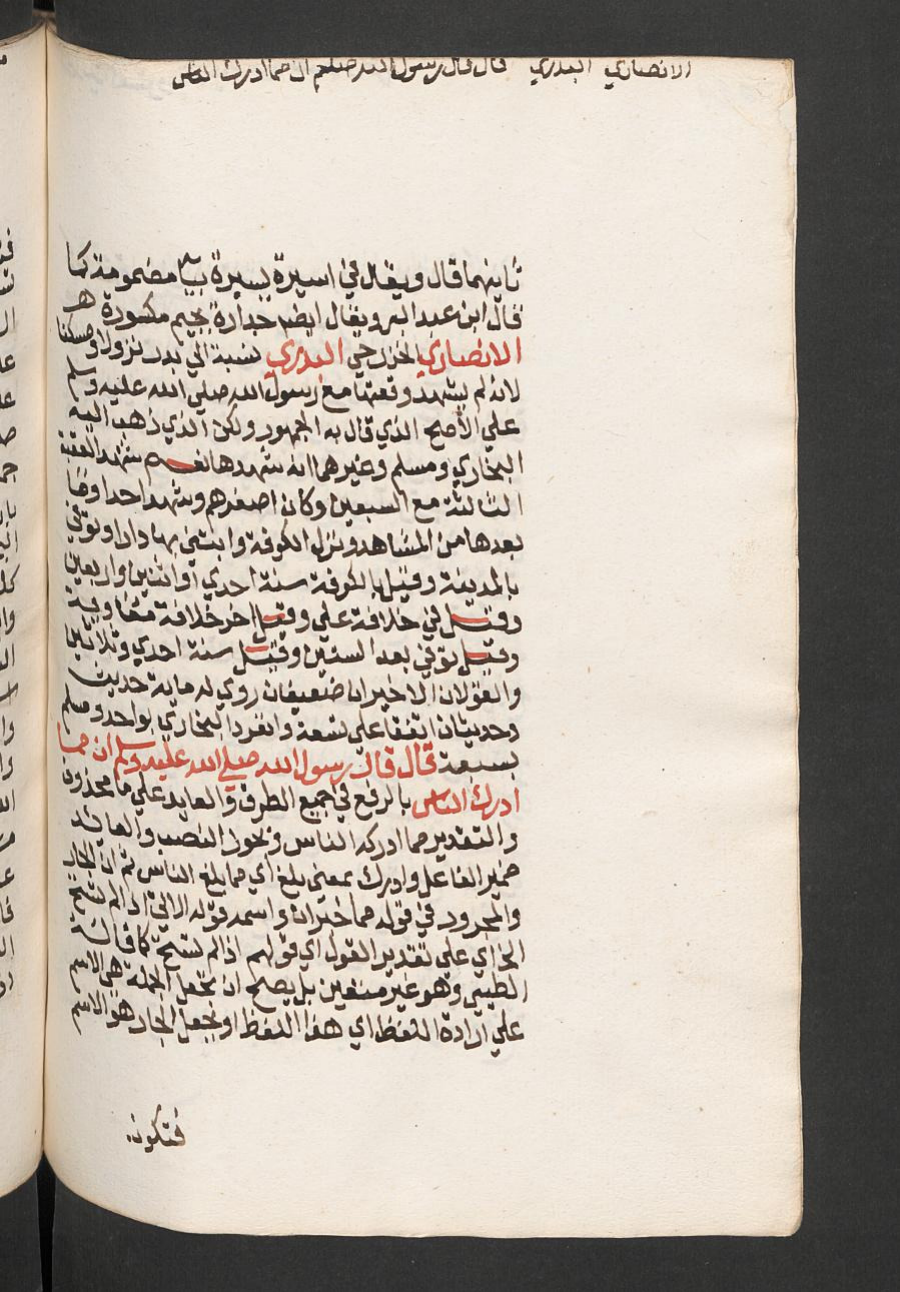 الانصاري البدري قال قال رسول الله صلعم ان مما ادرك الناس
ثانيهما قال ويقال في اسيرة يسيرة بياء مضمومة كما
قال ابن عبد البر ويقال ايضا جدارة بجيم مكسورة هو
الانصاري الخزرجي البدري نسبة الي بدر نزولا وسكنا
لانه لم يشهد وقعتها مع رسول الله صلي الله عليه وسلم
علي الأصح الذي قال به الجمهور ولكن الذي ذهب اليه
البخاري ومسلم وغيرهما انه شهدها نعم شهد العقبة
الثالثة مع السبعين وكان اصغرهم وشهد احدا وما
بعدها من المشاهد ونزل الكوفة وابتني بها دارا وتوفي
بالمدينة وقيل بالكوفة سنة احدي او اثنين واربعين
وقيل في خلافة علي وقيل اخر خلافة معاوية
وقيل توفي بعد الستين وقيل سنة احدي وثلاثين
والقولان الاخيران ضعيفان روي له ماية حديث
وحديثان اتفقا علي تسعة وانفرد البخاري بواحد ومسلم
بسبعة قال قال رسول الله صلي الله عليه وسلم ان مما
ادرك الناس بالرفع في جميع الطرق والعايد علي ما محذوف
والتقدير مما ادركه الناس ويجوز النصب والعايد
ضمير الفاعل وادرك بمعني بلغ اي مما بلغ الناس ثم ان الجار
والمجرور في قوله مما خبران واسمه قوله الاتي اذا لم تستح
الخ اي علي تقدير القول اي قولهم اذا لم تستح كما قاله
الطيبي وهو غير متعين بل يصح ان تجعل الجملة هي الاسم
علي ارادة اللفظ اي هذا اللفظ او تجعل الجار هو الاسم
فتكون